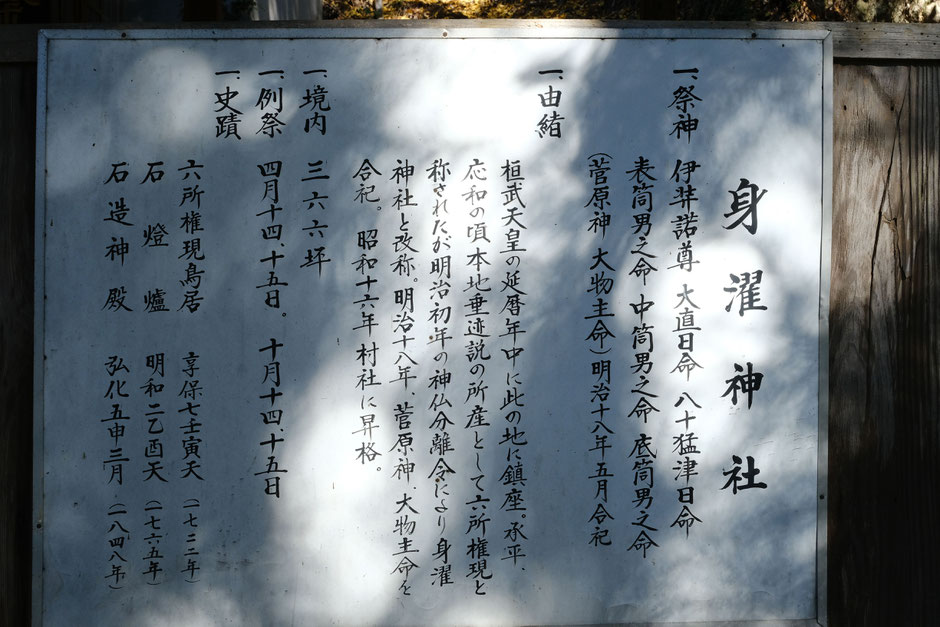 身濯神社
一、祭神 伊弉諾尊 大直日命 八十猛津日命
表筒男之命 中筒男之命 底筒男之命
(菅原神 大物主命)明治十八年五月合祀
一、由緒
桓武天皇の延暦年中に此の地に鎮座。承平、
応和の頃本地垂迹説の所産として六所権現と
称されたが明治初年の神仏分離令により身濯
神社と改称。明治十八年、菅原神、大物主命を
合祀。昭和十六年村社に昇格。
一、境内 三六六坪
一、例祭 四月十四、十五日。十月十四、十五日
一、史蹟
六所権現鳥居 享保七壬寅天(一七二二年)
石燈爐 明和二乙酉天(一七六五年)
石造神殿 弘化五申三月(一八四八年)